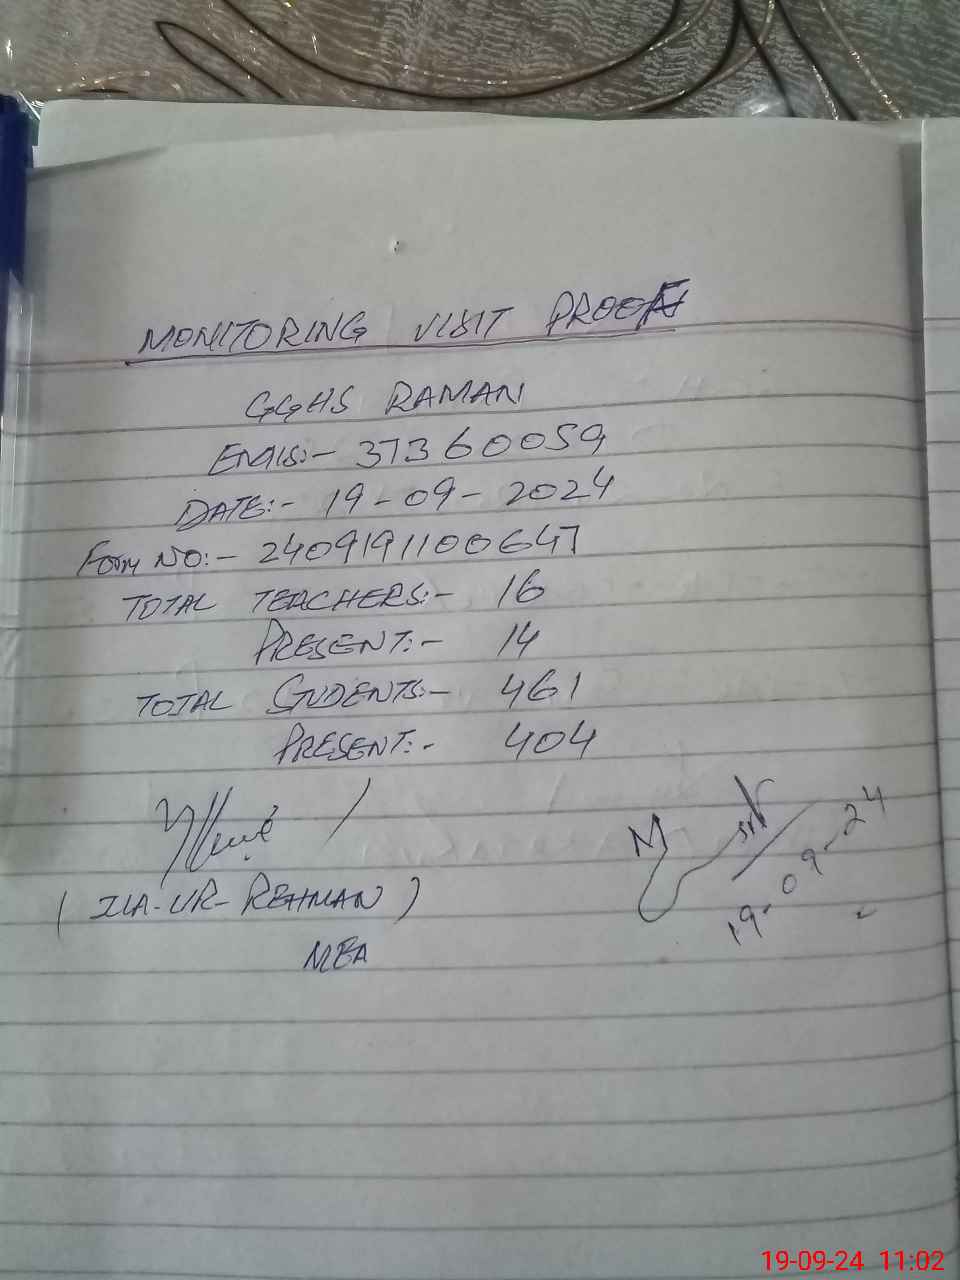 MONITORING VISIT PROOF
GGHS RAMAN
EMIS:- 37360059
DATE:- 19-09-2024
Form NO:- 2409191100647
TOTAL TEACHERS:- 16
PRESENT:- 14
TOTAL STUDENTS:- 461
PRESENT:- 404
(ZIA-UR-REHMAN)
MEA
19-09-24
19-09-24 11:02